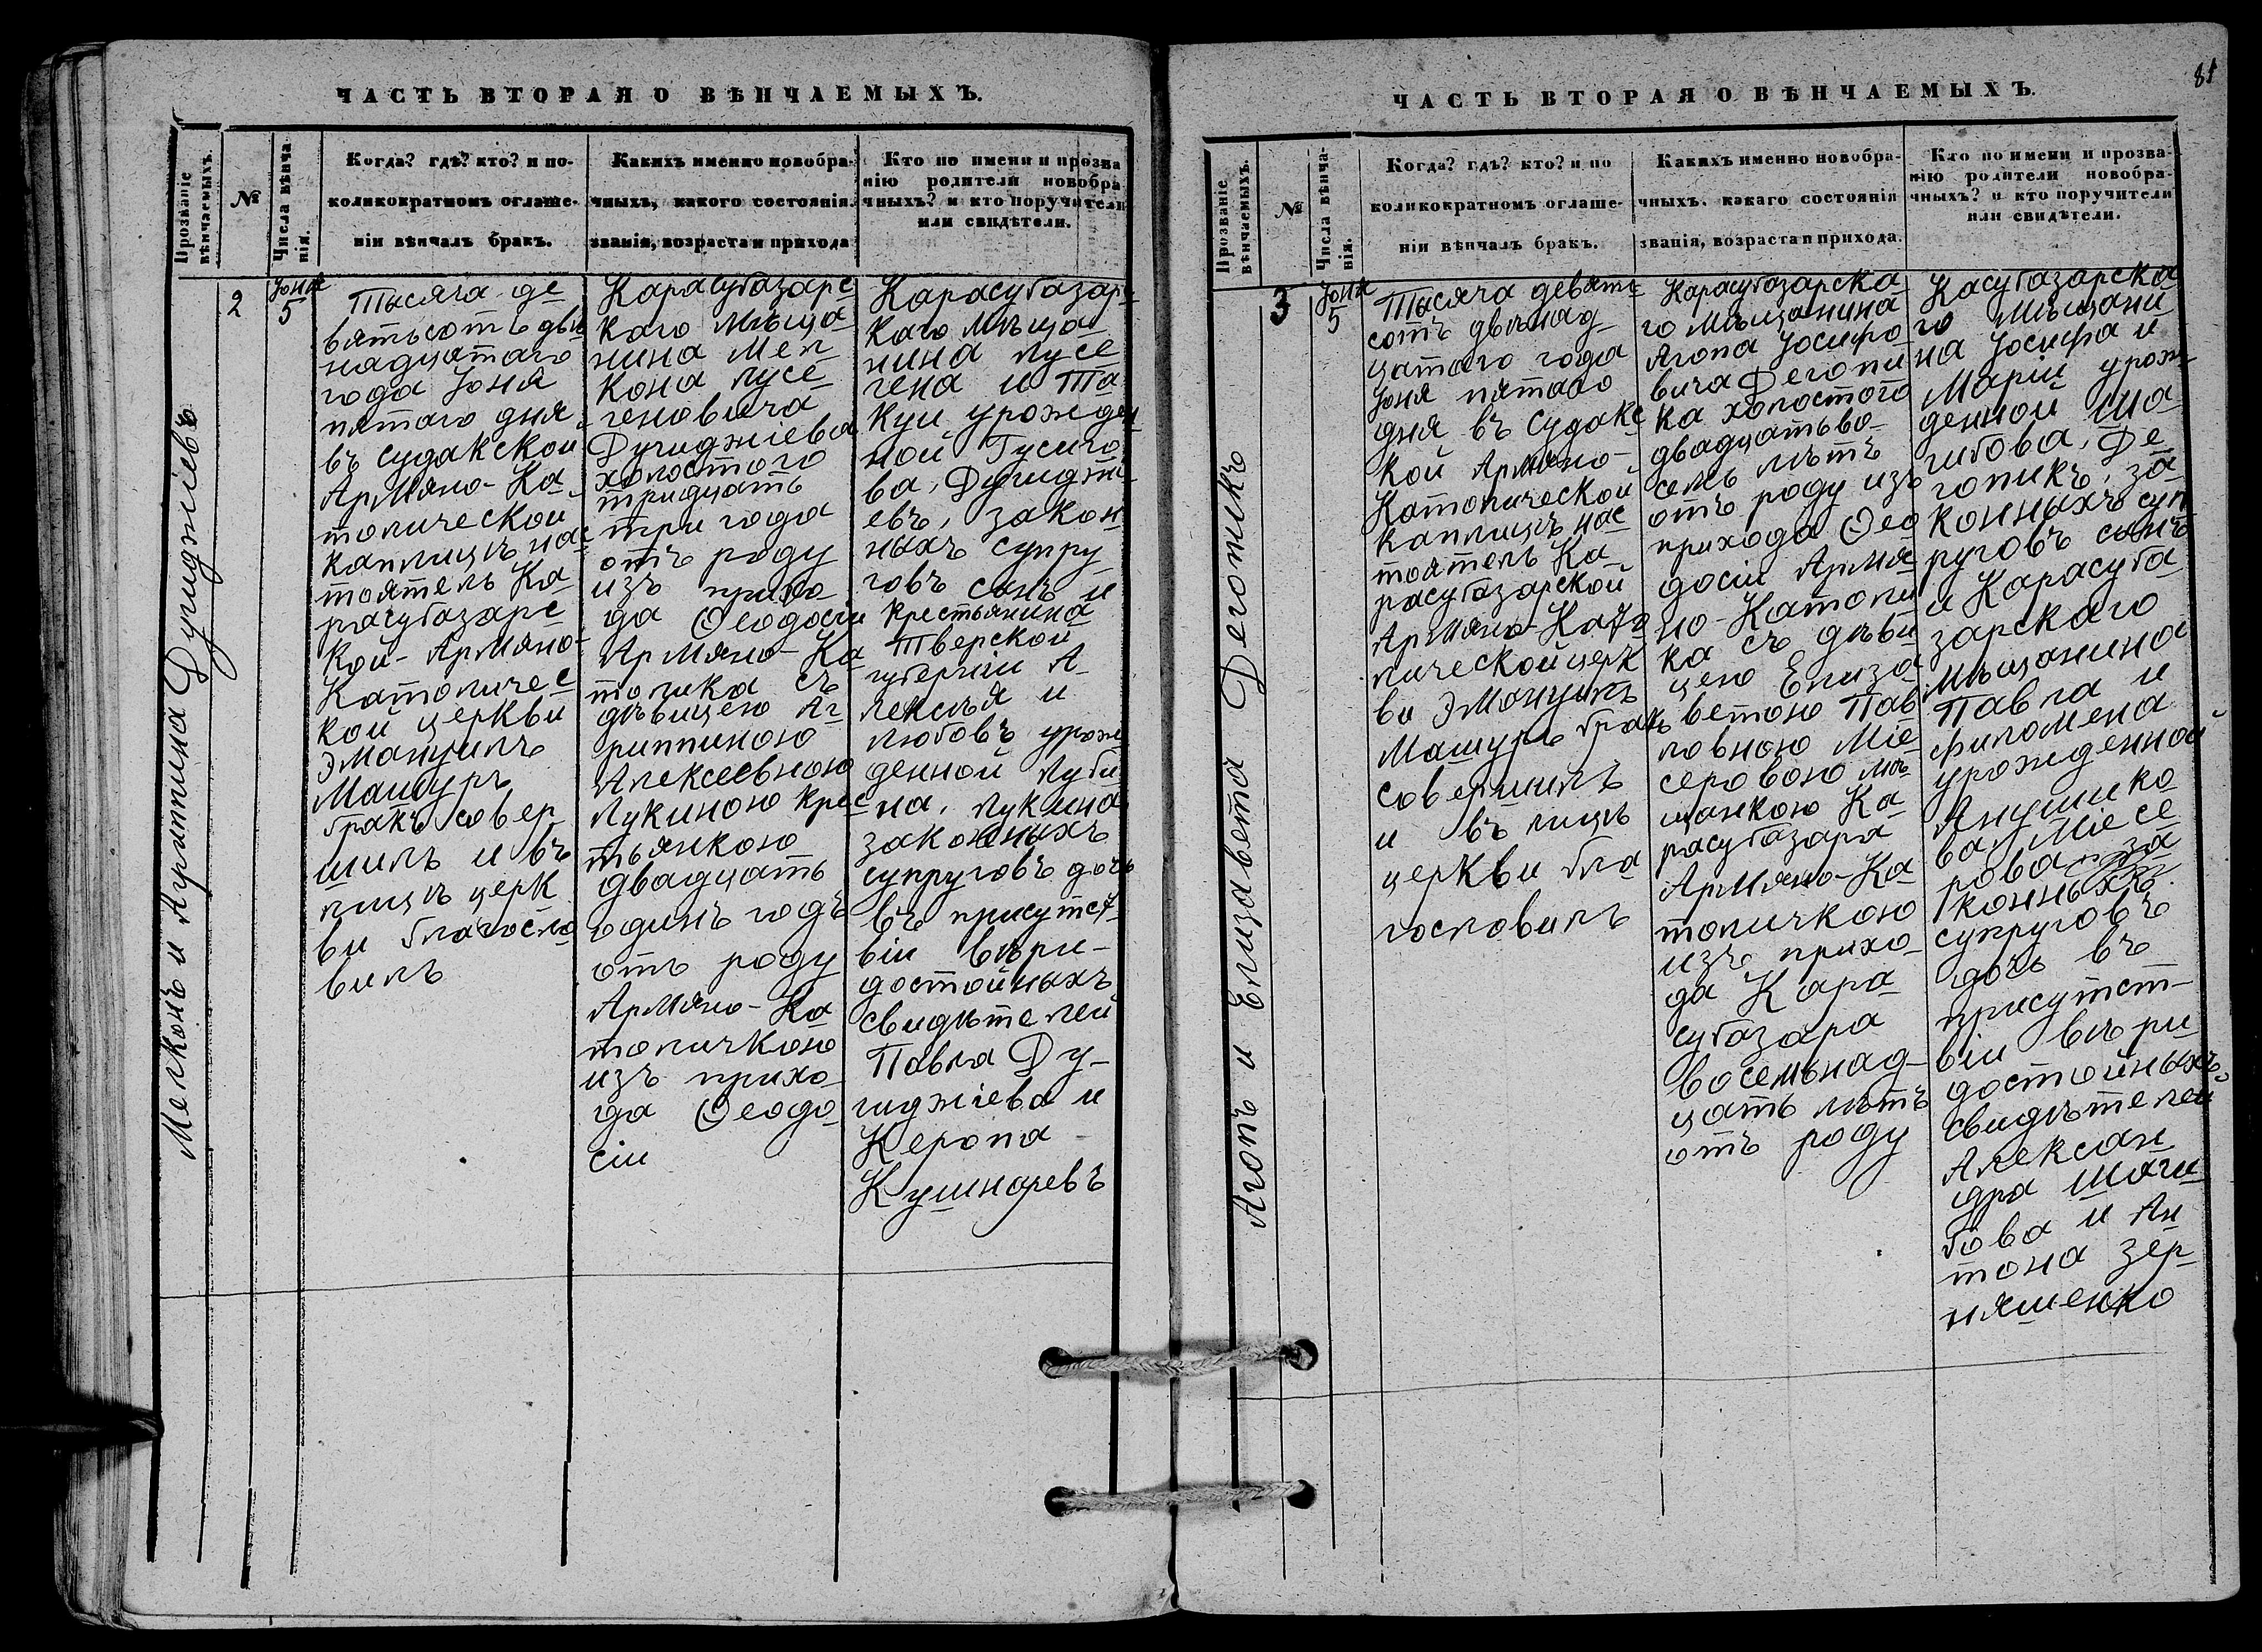 ЧАСТЬ ВТОРАЯ О ВѢНЧАЕМЫХЪ.
Прозваніе
вѣнчаемыхъ.
№
Числа вѣнча
нія.
Когда? гдѣ? кто? и по-
коликократномъ оглаше-
ніи вѣнчалъ бракъ.
Какихъ именно новобра-
чныхъ, какого состоянія.
званія, возраста и прихода
Кто по имени и прозва
нію родители новобра
чныхъ? и кто поручители
или свидѣтели.
Мелконъ и Агриппина Дугиджіевъ
2
Іоня
5
Тысяча де
вятьсотъ двѣ
надцатаго
года Іоня
пятаго дня
въ Судакской
Армяно-Ка
толической
каплицѣ нас
тоятель Ка
расубазарс
кой-Армяно-
Католичес
кой церкви
Эмануилъ
Машуръ
бракъ совер
шилъ и въ
лицѣ церк
ви благосло
вилъ
Карасубазарс
каго мѣща
нина Мел
кона Лусе
геновича
Дугиджіева
холостого
тридцать
три года
отъ роду
изъ прихо
да Ѳеодосіи
Армяно-Ка
толика съ
дѣвицею Аг
риппиною
Алексеевною
Лукиною крес
тьянкою
двадцать
одинъ годъ
отъ роду
Армяно-Ка
толичкою
изъ прихо
да Ѳеодо
сіи
Карасубазарс
каго мѣща
нина Лусе
гена и Та
куи урожден
ной Гусиго
ва, Дугиджі
евъ, закон
ныхъ супру
говъ сынъ и
крестьянина
Тверской
губерніи А
лексѣя и
Любовъ урож
денной Луби
на, Лукина
законныхъ
супруговъ дочь
въ присутст
віи вѣри-
достойныхъ
свидѣтелей
Павла Ду-
гиджіева и
Керопа
Кушнаревъ
ЧАСТЬ ВТОРАЯ О ВѢНЧАЕМЫХЪ.
81
Прозваніе
вѣнчаемыхъ.
№
Числа вѣнча-
нія.
Когда? гдѣ? кто? и по
коликократномъ оглаше-
ніи вѣнчалъ бракъ.
Какихъ именно новобра-
чныхъ. какаго состоянія
званія, возраста и прихода.
Кто по имени и прозва-
нію родители новобра-
чныхъ? и кто поручители
или свидѣтели.
Агопъ и Елизавета Деготикъ
3
Іоня
5
Тысяча девять
сотъ двѣнад-
цатаго года
Іоня пятаго
дня въ Судакс
кой Армяно-
Католической
каплицѣ нас
тоятель Ка
расубазарской
Армяно-Като
лической церк
ви Эмануилъ
Машуръ бракъ
совершилъ
и въ лицѣ
церкви бла
гословилъ
Карасубазарска
го мѣщанина
Агопа Іосифо
вича Деготи
ка холостого
двадцатьво-
семь лѣтъ
отъ роду изъ
прихода Ѳео
досіи Армя
но-Католи
ка съ дѣви
цею Елиза
ветою Пав
ловною Міе
серовою мѣ
щанкою Ка
расубазара
Армяно-Ка
толичкою
изъ прихо-
да Кара
субазара
восемьнад-
цать лѣтъ
отъ роду
Касубазарска
го мѣщани
на Іосифа и
Маріи урож
денной Ша
гибова, Де
готикъ, за
конныхъ суп
руговъ сынъ
и Карасуба
зарскаго
мѣщанина
Павла и
Филомена
урожденной
Анушико
ва, Міесе
рова, за
конныхъ
супруговъ
дочь въ
присутст-
віи вѣри-
достойныхъ
свидѣтелей
Алексан
дра Шаги
бова и Ан
тона Зер
няшенко